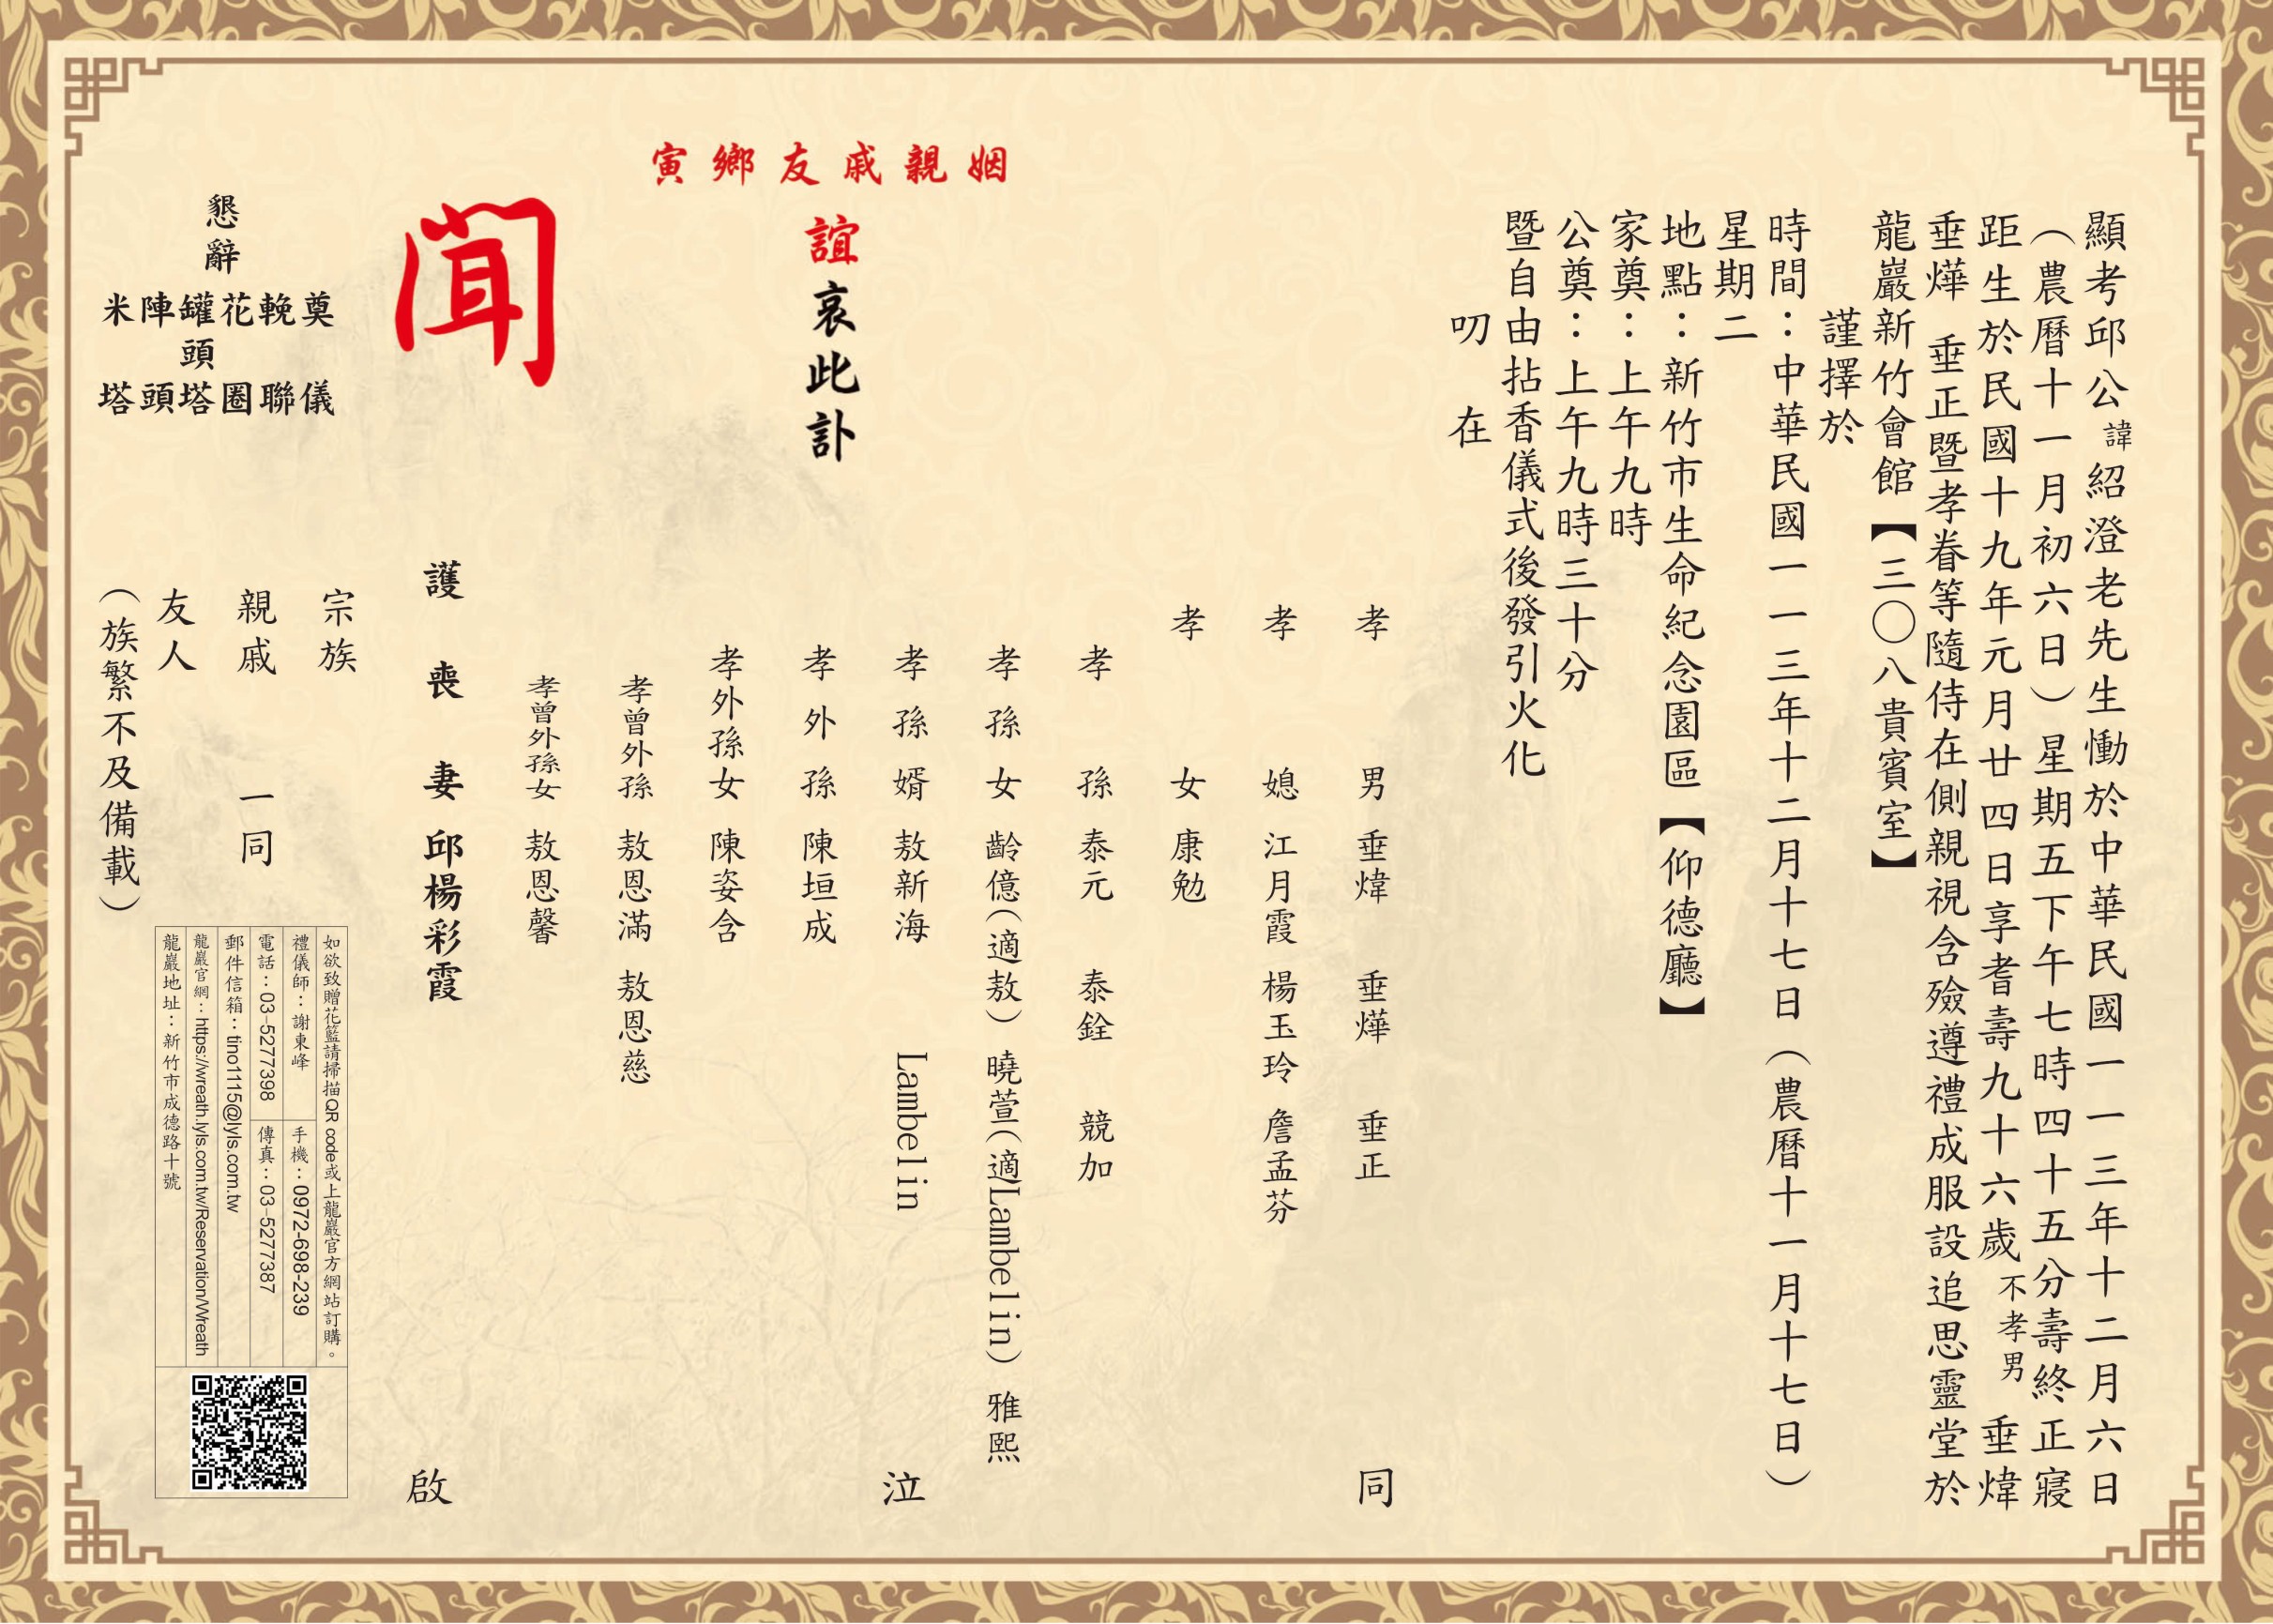 顯考邱公諱紹澄老先生慟於中華民國一一三年十二月六日
（農曆十一月初六日）星期五下午七時四十五分壽終正寢
距生於民國十九年元月廿四日享耆壽九十六歲不孝男 垂煒
垂燁 垂正暨孝眷等隨侍在側親視含殮遵禮成服設追思靈堂於
龍巖新竹會館【三〇八貴賓室】
謹擇於
時間：中華民國一一三年十二月十七日（農曆十一月十七日）
星期二
地點：新竹市生命紀念園區【仰德廳】
家奠：上午九時
公奠：上午九時三十分
暨自由拈香儀式後發引火化
叨 在
姻親戚友鄉寅
誼哀此訃
聞
孝男 垂煒 垂燁 垂正
孝媳 江月霞 楊玉玲 詹孟芬
孝女 康勉
孝孫 泰元 泰銓 競加
孝孫女 齡億（適敖） 曉萱（適Lambelin） 雅熙
孝孫婿 敖新海 Lambelin
孝外孫 陳垣成
孝外孫女 陳姿含
孝曾外孫 敖恩滿 敖恩慈
孝曾外孫女 敖恩馨
護喪妻 邱楊彩霞
同 泣 啟
宗族
親戚 一同
友人
（族繁不及備載）
懇辭
奠儀
輓聯
花圈
罐頭塔
陣頭
米塔
如欲致贈花籃請掃描QR code或上龍巖官方網站訂購。
禮儀師：謝東峰 手機：0972-698-239
電話：03-5277398 傳真：03-5277387
郵件信箱：tino1115@lyls.com.tw
龍巖官網：https://wreath.lyls.com.tw/Reservation/Wreath
龍巖地址：新竹市成德路十號